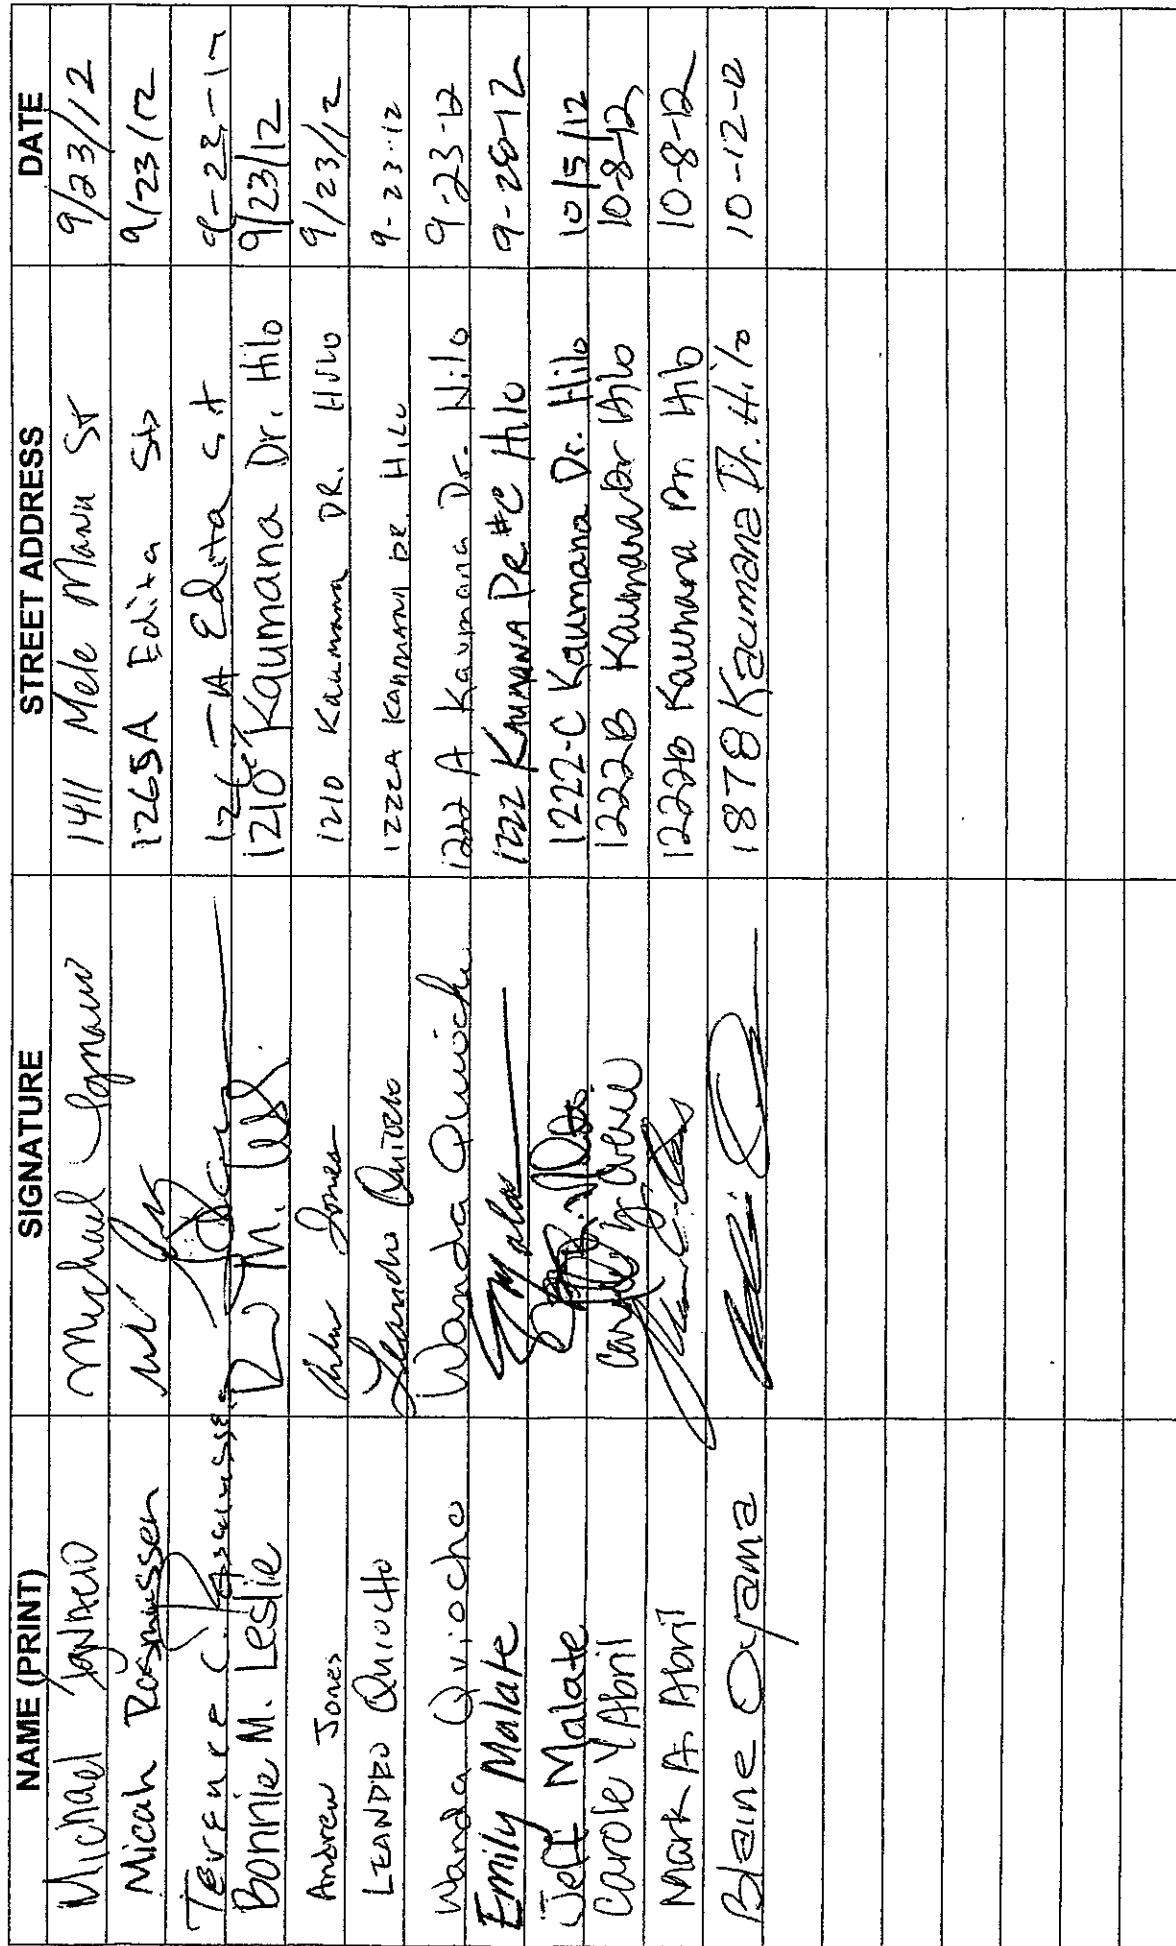 NAME (PRINT) SIGNATURE STREET ADDRESS DATE
Michael Ignacio Michael Ignacio 1411 Mele Manu St 9/23/12
Micah Rasmussen 1265A Edita St 9/23/12
Terence C. Rasmussen Edita St
Bonnie M. Leslie 1210 Kaumana Dr. Hilo 9/23/12
Andrew Jones Andrew Jones 1210 Kaumana DR. Hilo 9/23/12
LEANDRO QUIOCHO Leandro Quiocho 1222A KAUMANA DR. HILO 9-23-12
Wanda Quiocho Wanda Quiocho 1222 A Kaumana Dr. Hilo 9-23-12
Emily Malate EMalate 1222 KAUMANA DR #C Hilo 9-28-12
Jeff Malate 1222-C Kaumana Dr. Hilo 10/5/12
Carole Y Abril 1222B Kaumana Dr Hilo 10-8-12
Mark A. Abril 1222B Kaumana Dr. Hilo 10-8-12
Blaine Oyama 1878 Kaumana Dr. Hilo 10-12-12